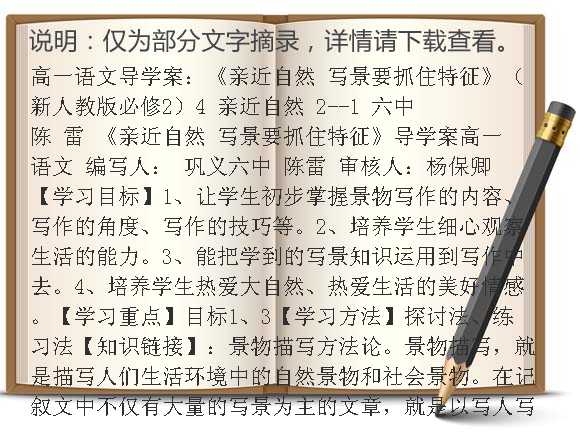 说明：仅为部分文字摘录，详情请下载查看。
高一语文导学案：《亲近自然 写景要抓住特征》（
新人教版必修2）4 亲近自然 2--1 六中
陈 雷 《亲近自然 写景要抓住特征》导学案高一
语文 编写人： 巩义六中 陈雷 审核人：杨保卿
【学习目标】1、让学生初步掌握景物写作的内容、
写作的角度、写作的技巧等。2、培养学生细心观察
生活的能力。3、能把学到的写景知识运用到写作中
去。4、培养学生热爱大自然、热爱生活的美好情感
。【学习重点】目标1、3【学习方法】探讨法、练
习法【知识链接】：景物描写方法论。景物描写，就
是描写人们生活环境中的自然景物和社会景物。在记
叙文中不仅有大量的写景为主的文章，就是以写人写